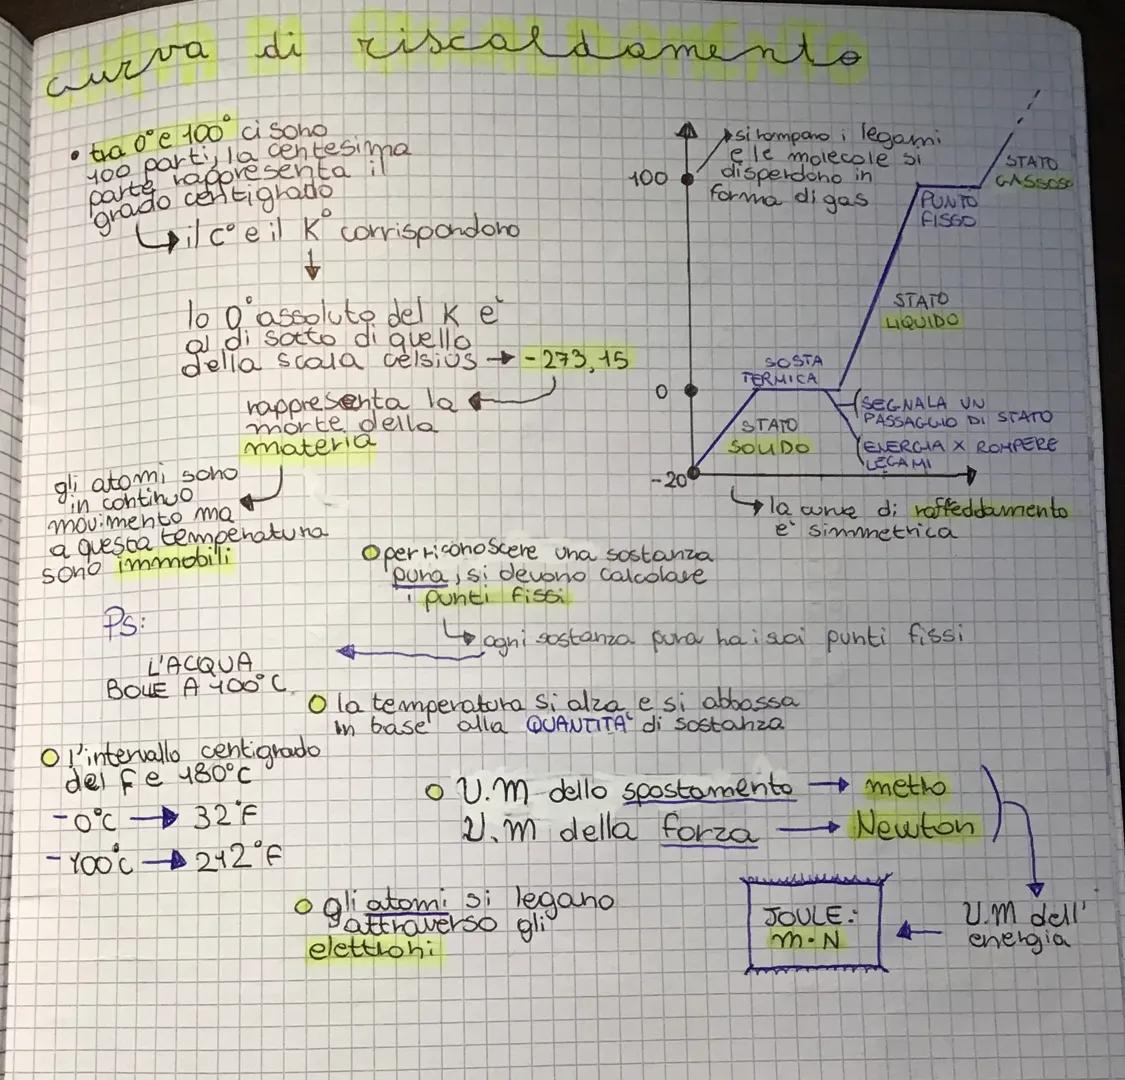 curva di riscaldamento
• tra 0° e 100° ci sono
100 parti, la centesima
parte rappresenta il
grado centigrado
↳ il c° e il K° corrispondono
↓
lo 0° assoluto del K è
al di sotto di quello
della scala celsius → -273,15
rappresenta la
morte della
materia
gli atomi sono
in continuo
movimento ma
a questa temperatura
sono immobili
si rompono i legami
e le molecole si
disperdono in
forma di gas
100
0
-20
STATO
GASSOSO
PUNTO
FISSO
STATO
LIQUIDO
SOSTA
TERMICA
SEGNALA UN
PASSAGGIO DI STATO
ENERGIA X ROMPERE
LEGAMI
STATO
SOLIDO
↳ la curva di raffeddamento
e' simmetrica
○ per riconoscere una sostanza
pura, si devono calcolare
i punti fissi
↳ ogni sostanza pura ha i suoi punti fissi
PS:
L'ACQUA
BOLLE A 100°C.
○ la temperatura si alza e si abbassa
in base alla QUANTITA' di sostanza
○ l'intervallo centigrado
del F e 180°C
- 0°C → 32°F
- 100°C → 212°F
○ U.M dello spostamento → metro
U.M della forza → Newton
U.M dell'
energia
JOULE:
m·N
○ gli atomi si legano
attraverso gli
elettroni